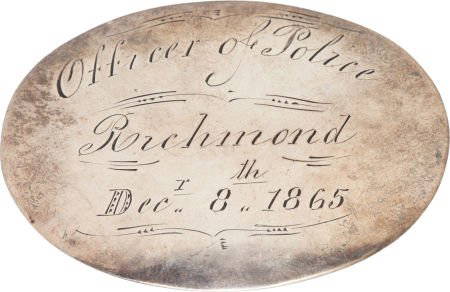 Officer of Police
Richmond
Decr 8th 1865